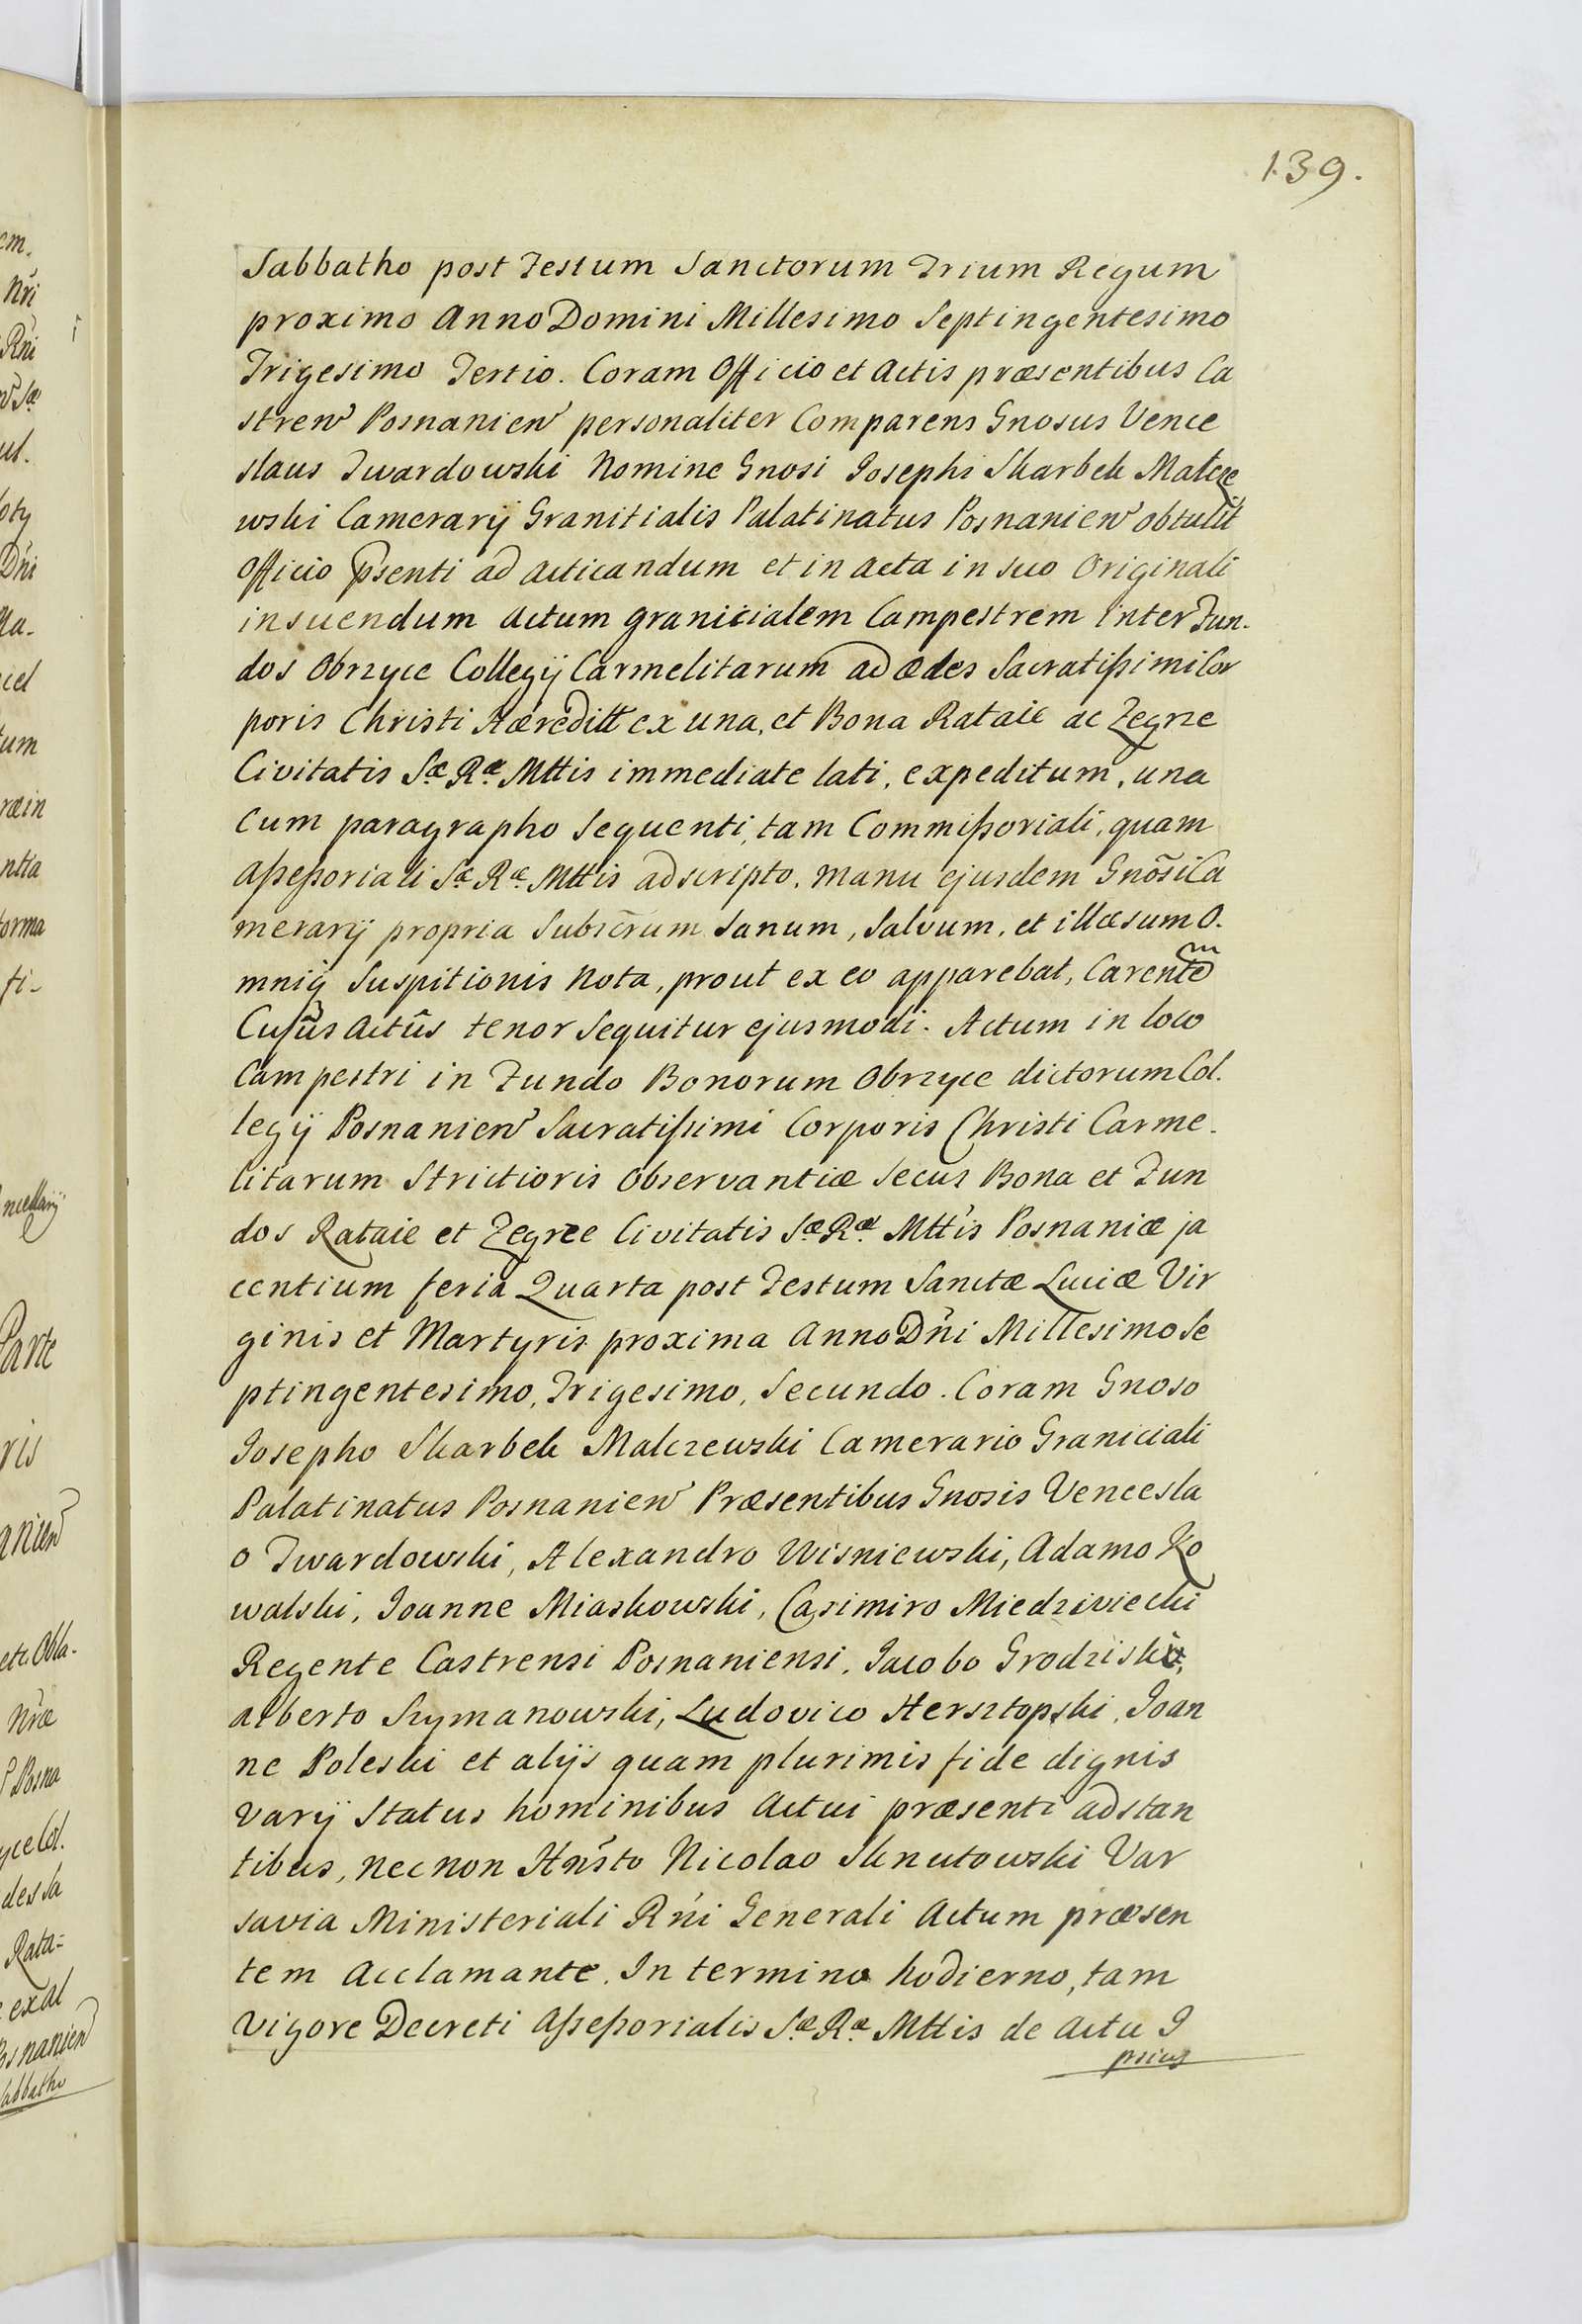 139.
Sabbatho post Festum Sanctorum Trium Regum
proximo Anno Domini Millesimo Septingentesimo
Trigesimo Tertio. Coram Officio et Actis præsentibus Ca
stren Posnanien personaliter Comparens Gnosus Vence
slaus Twardowski Nomine Gnosi Josephi Skarbek Malcze
wski Camerarij Granitialis Palatinatus Posnanien obtulit
Officio pṡenti ad acticandum et in acta in suo Originali
insuendum Actum granicialem Campestrem inter Fun-
dos Obrzyce Collegij Carmelitarum ad ædes Sacratißimi Cor
poris Christi Hæreditt ex una, et Bona Rataie ac Zegrze
Civitatis Sæ Ræ Mttis immediate lati, expeditum, una
cum paragrapho sequenti, tam Commißoriali, quam
Aßeßoriali Sæ Ræ Mttis adscripto, manu ejusdem Gnõsi Ca
merarij propria Subscrum Sanum, Salvum, et illæsum O.
mniq Suspitionis nota, prout ex eo apparebat, Carentem
Cujũs Actũs tenor sequitur ejusmodi. Actum in loco
Campestri in Fundo Bonorum Obrzyce dictorum Col.
legij Posnanien Sacratißimi Corporis Christi Carme-
litarum Strictioris Observantiæ Secus Bona et Fun
dos Rataie et Zegrze Civitatis Sæ Ræ Mttis Posnaniæ ja
centium feria Quarta post Festum Sanctæ Luciæ Vir
ginis et Martyris proxima Anno Dñi Millesimo Se
ptingentesimo, Trigesimo, Secundo. Coram Gnoso
Josepho Skarbek Malczewski Camerario Graniciali
Palatinatus Posnanien Præsentibus Gnosis Vencesla
o Twardowski, Alexandro Wisniewski, Adamo Ko
walski, Joanne Miaskowski, Casimiro Miedzwiecki
Regente Castrensi Posnaniensi, Jacobo Grodziski,
Alberto Szymanowski, Ludovico Hersztopski, Joan
ne Poleski et alijs quam plurimis fide dignis
varij Status hominibus Actui præsenti adstan
tibus, nec non Hñsto Nicolao Sknutowski Var
savia Ministeriali Rñi Generali Actum præsen
tem acclamante. In termino hodierno, tam
vigore Decreti Aßeßorialis Sæ Ræ Mttis de actu I
psius